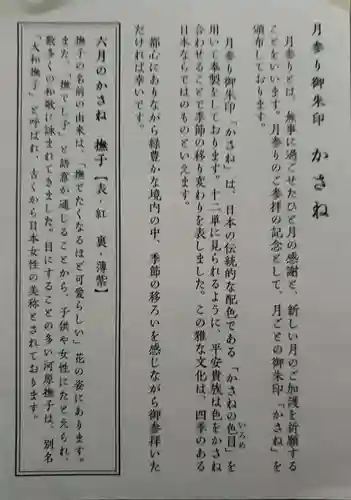 月参り御朱印　かさね
月参りとは、無事に過ごせたひと月の感謝と、新しい月のご加護を祈願する
ことをいいます。月参りのご参拝の記念として、月ごとの御朱印「かさね」を
頒布しております。
月参り御朱印「かさね」は、日本の伝統的な配色である「かさねの色目」を
いろめ
用いて奉製をしております。十二単に見られるように、平安貴族は色をかさね
合わせることで季節の移り変わりを表しました。この雅な文化は、四季のある
日本ならではのものといえます。
都心にありながら緑豊かな境内の中、季節の移ろいを感じながら御参拝いた
だければ幸いです。
六月のかさね　撫子【表・紅　裏・薄紫】
撫子の名前の由来は、「撫でたくなるほど可愛らしい」花の姿にあります。
また、「撫でし子」と語意が通じることから、子供や女性にたとえられ、
数多くの和歌に詠まれてきました。目にすることの多い河原撫子は、別名
「大和撫子」と呼ばれ、古くから日本女性の美称とされております。